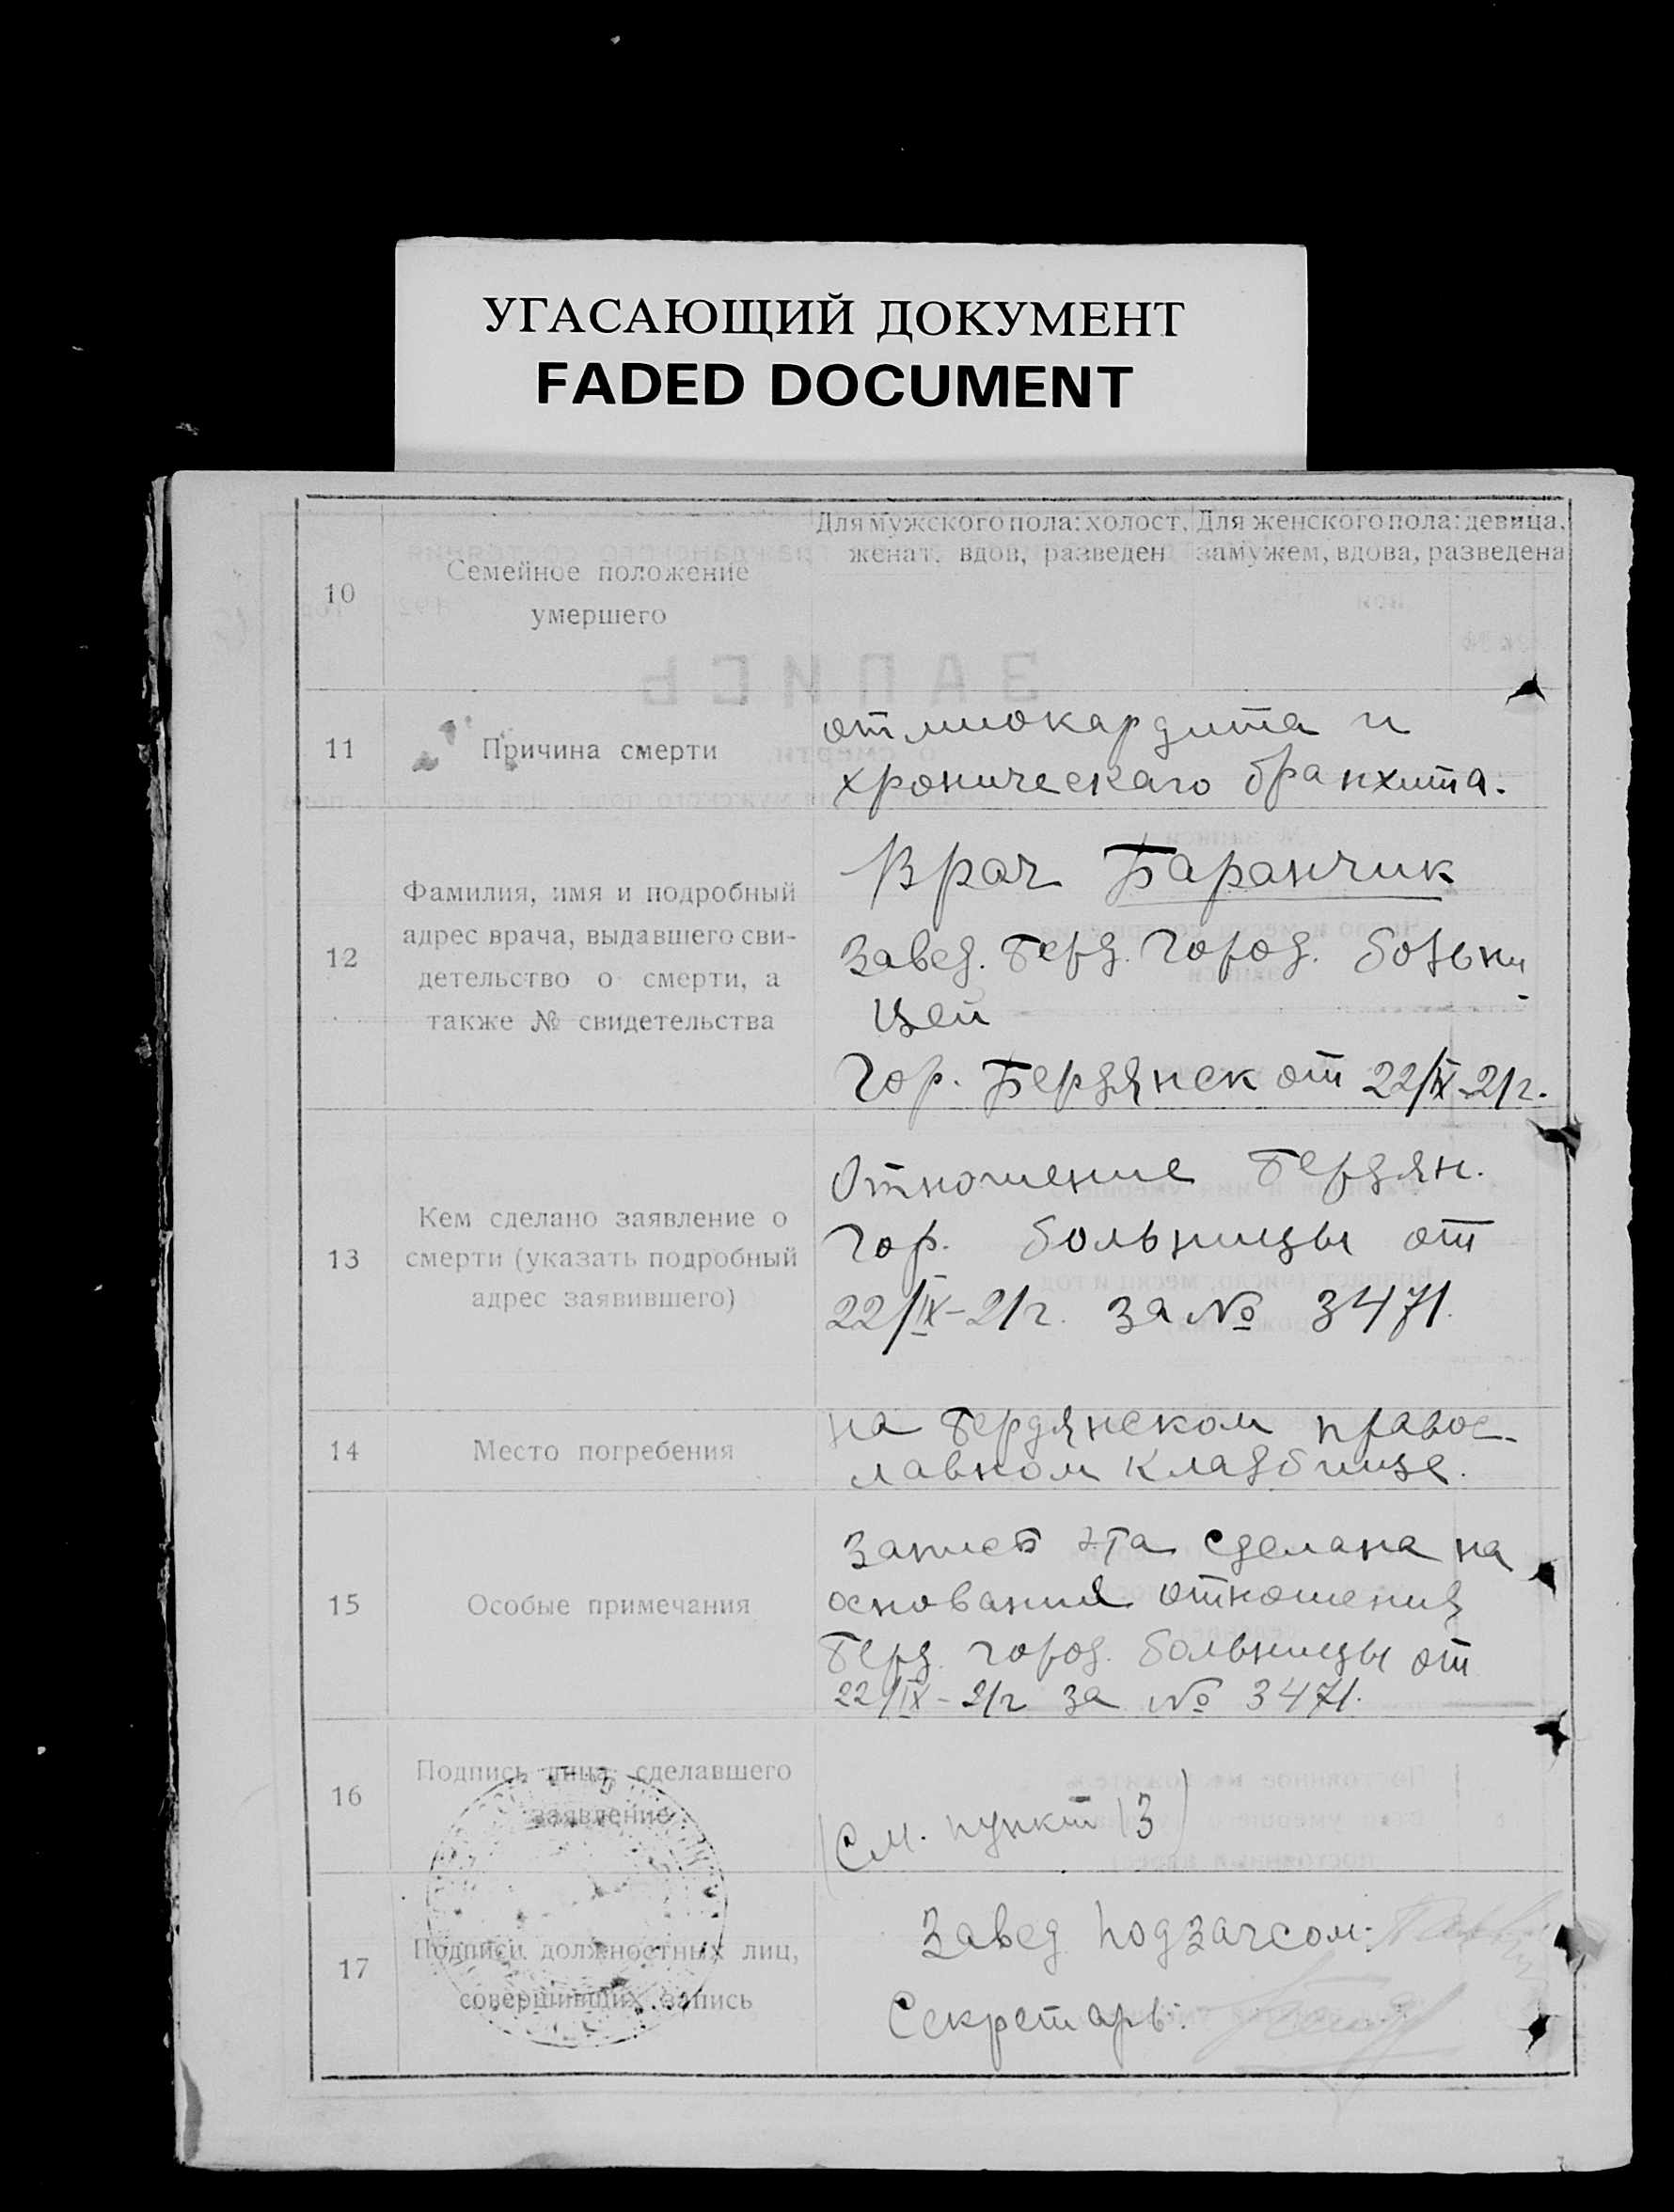 УГАСАЮЩИЙ ДОКУМЕНТ
FADED DOCUMENT
10
Семейное положение
умершего
Для мужского пола: холост,
женат, вдов, разведен
Для женского пола: девица,
замужем, вдова, разведена
ЗАПИСЬ
11
Причина смерти
от миокардита и
хроническаго бранхита.
12
Фамилия, имя и подробный
адрес врача, выдавшего сви-
детельство о смерти, а
также № свидетельства
Врач Баранчик
Завед. Берд. Город. больни
цей
Гор. Бердянск от 22/IX-21г.
13
Кем сделано заявление о
смерти (указать подробный
адрес заявившего)
Отношение Бердян.
Гор. больницы от
22/IX-21г. за № 3471.
14
Место погребения
на Бердянском правос-
лавном кладбище.
15
Особые примечания
Запись эта сделана на
основании отношения
Берд. город. больницы от
22/IX-21г за № 3471.
16
Подпись лица, сделавшего
заявление
(См. пункт 13)
17
Подписи должностных лиц,
совершивших запись
Завед подзагсом:
Секретарь: